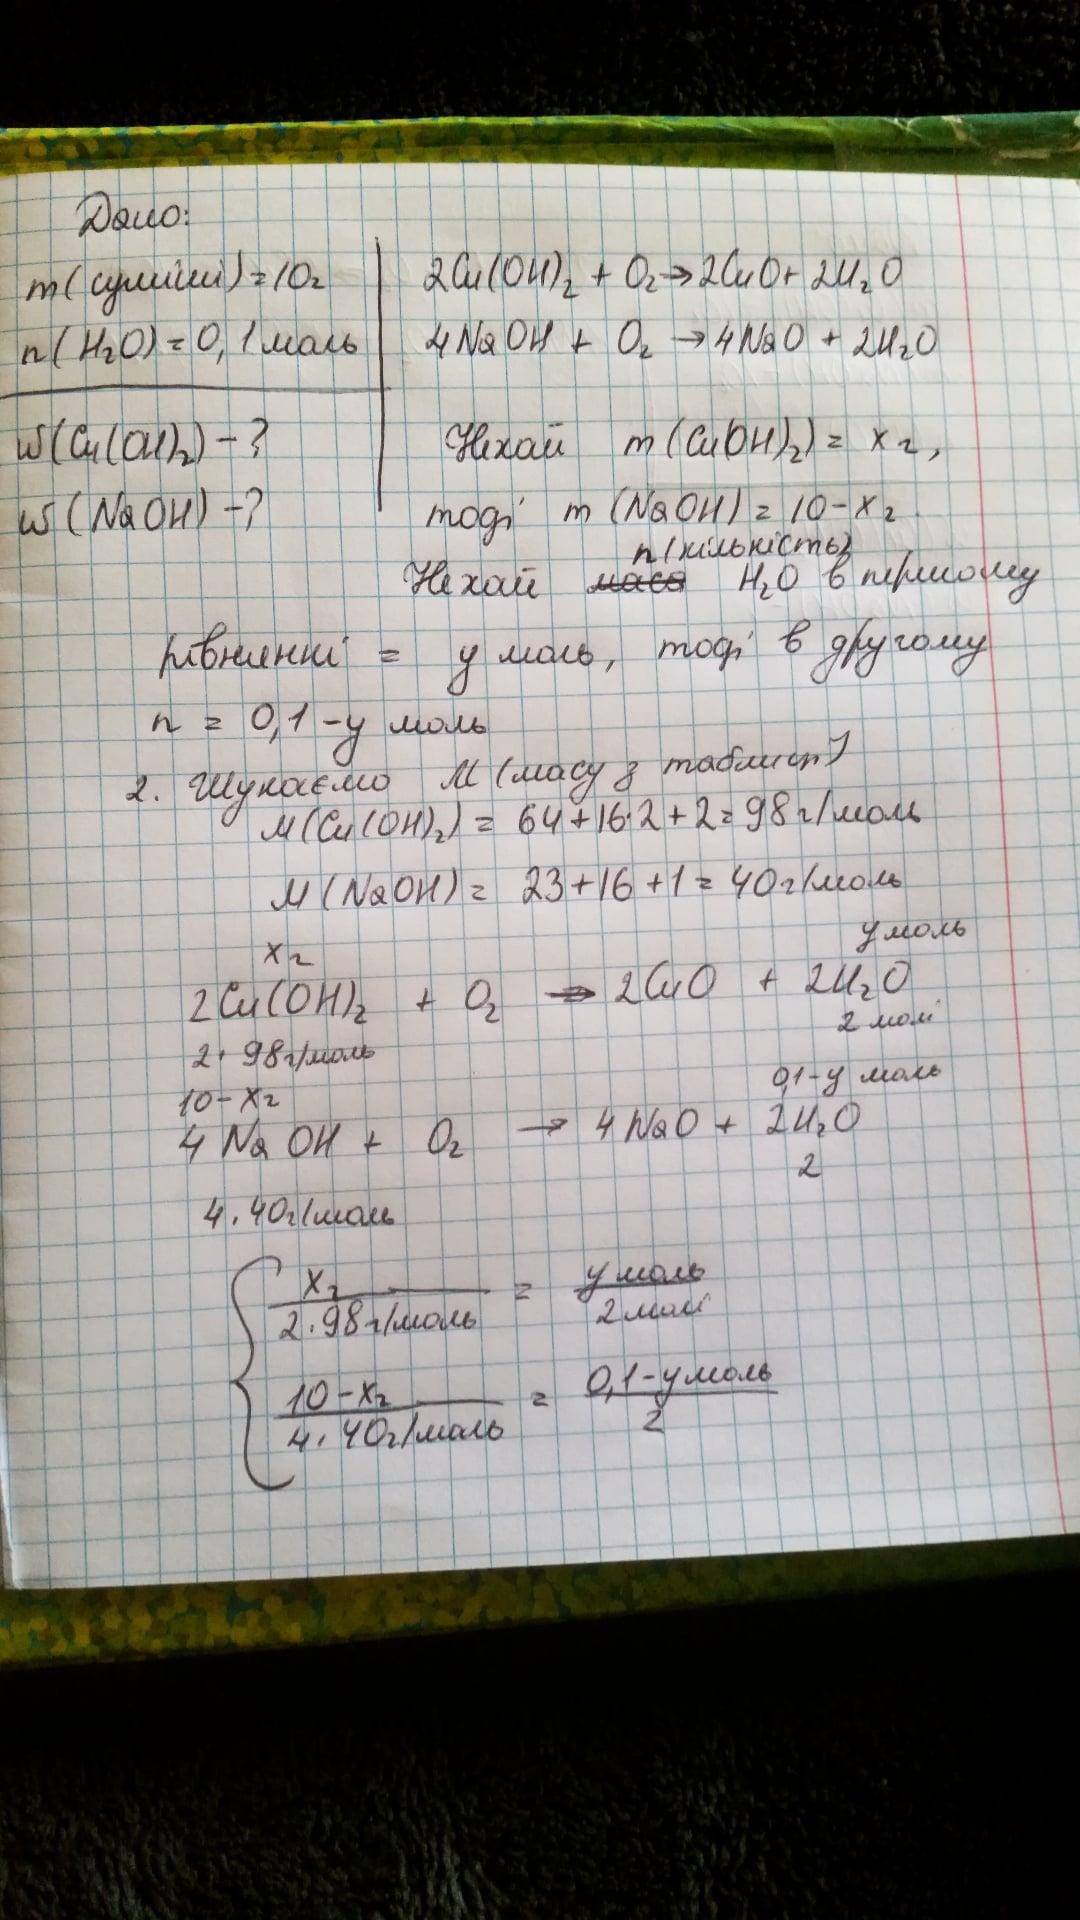 Дано:
m(суміші)=10г
n(H₂O)=0,1 моль
W(Cu(OH)₂)-?
W(NaOH)-?
2Cu(OH)₂ + O₂→2CuO+2H₂O
4NaOH + O₂ →4NaO + 2H₂O
Нехай m(Cu(OH)₂)= x г,
тоді m(NaOH)= 10-x г
n(кількість)
Нехай маса H₂O в першому
рівнянні = y моль, тоді в другому
n = 0,1-y моль
2. Шукаємо M (масу з таблиці)
M(Cu(OH)₂)= 64+16·2+2=98 г/моль
M(NaOH)= 23+16+1=40 г/моль
x г y моль
2Cu(OH)₂ + O₂ → 2CuO + 2H₂O
2·98 г/моль 2 молі
10-x г 0,1-y моль
4NaOH + O₂ → 4NaO + 2H₂O
4·40 г/моль 2
x г = y моль
2·98 г/моль 2 молі
10-x г = 0,1-y моль
4·40 г/моль 2